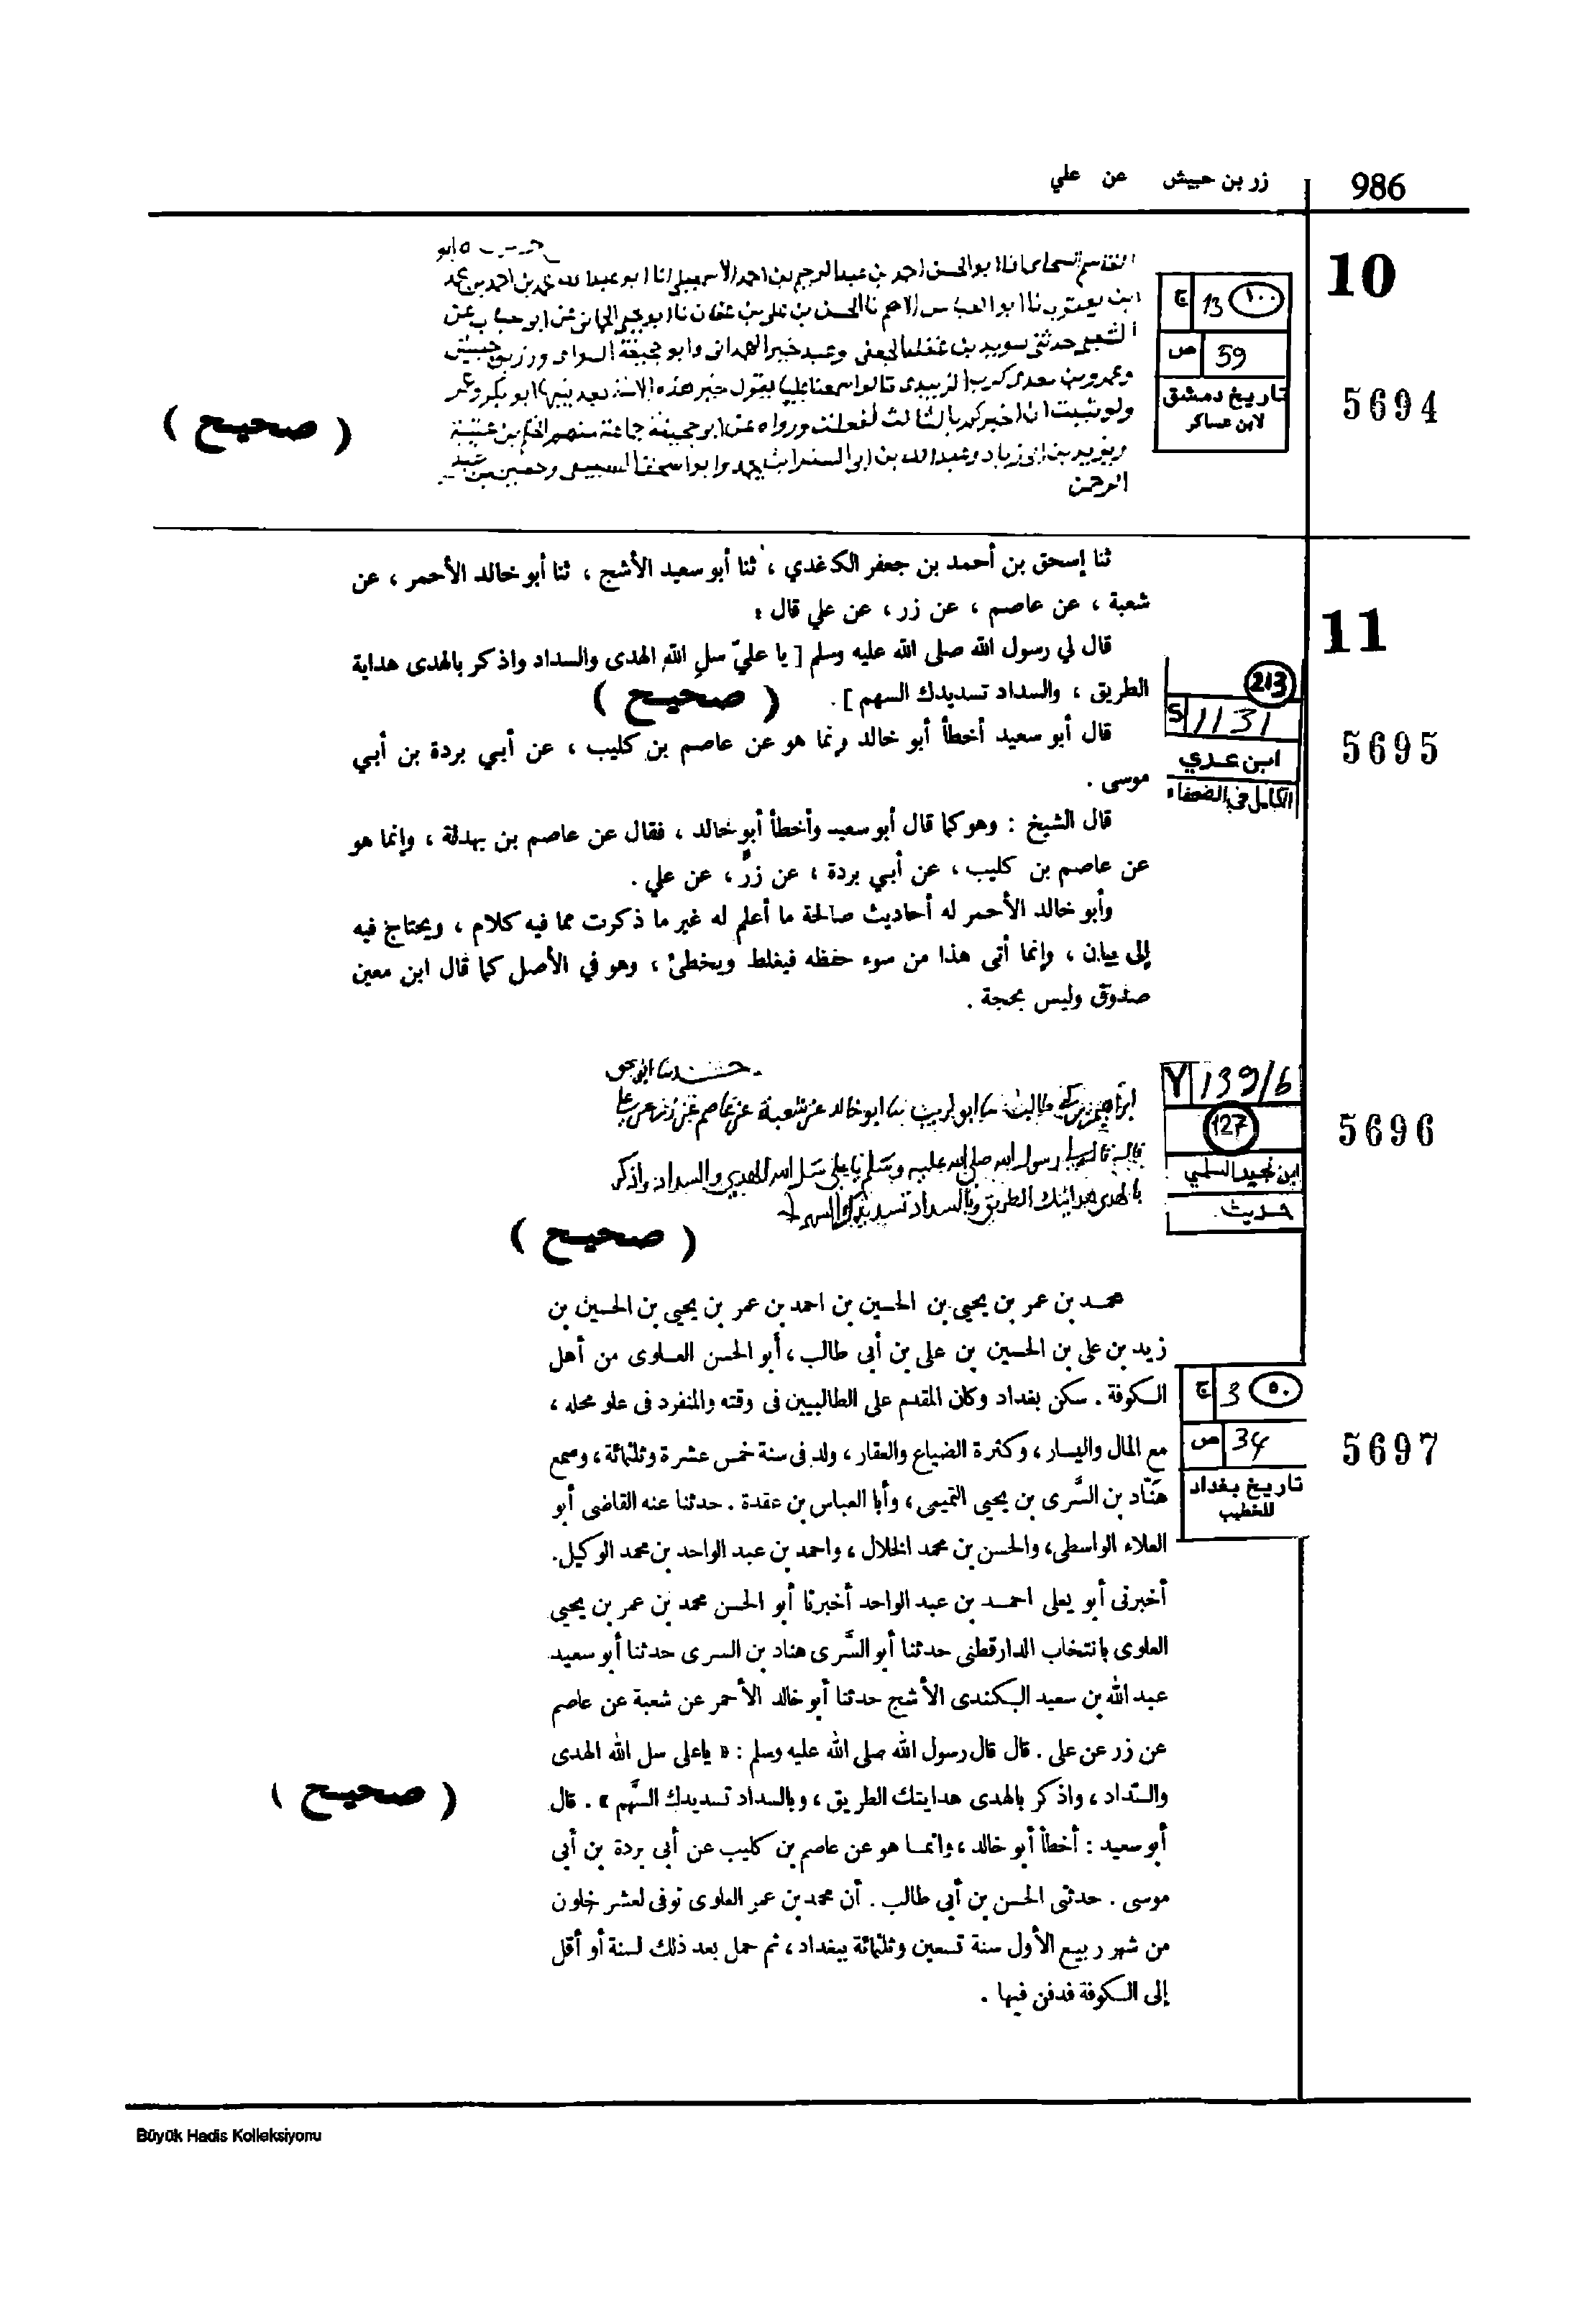 986
زر بن حبيش عن علي
10
١٠٠ 13 ج
59 ص
تاريخ دمشق
لابن عساكر
5694
ابن يعقوب نا ابو العباس الاصم نا الحسن بن علي بن عفان نا ابو يحيى الحماني عن ابو جناب عن
الشعبي حدثني سويد بن غفلة الجعفي وعبد خير الهمداني وابو جحيفة السوائي وزر بن حبيش
وعمرو بن معدي كرب الزبيدي قالوا سمعنا عليا يقول خير هذه الامة بعد نبيها ابو بكر وعمر
ولو شيت ان اخبركم بالثالث لفعلت ورواه عن ابو جحيفة جماعة منهم الحكم بن عتيبة
ويزيد بن ابي زياد وعبد الله بن ابو السفر ابو اسحق السبيعي وحصين بن عبد
الرحمن
( صحيح )
11
213
S 1131
ابن عدي
الكامل في الضعفاء
5695
ثنا إسحق بن أحمد بن جعفر الكاغدي ، ثنا أبو سعيد الأشج ، ثنا أبو خالد الأحمر ، عن
شعبة ، عن عاصم ، عن زر ، عن علي قال :
قال لي رسول الله صلى الله عليه وسلم [ يا عليّ سلِ الله الهدى والسداد واذكر بالهدى هداية
الطريق ، والسداد تسديدك السهم ] . ( صحيح )
قال أبو سعيد أخطأ أبو خالد وإنما هو عن عاصم بن كليب ، عن أبي بردة بن أبي
موسى .
قال الشيخ : وهو كما قال أبو سعيد وأخطأ أبو خالد ، فقال عن عاصم بن بهدلة ، وإنما هو
عن عاصم بن كليب ، عن أبي بردة ، عن زرّ ، عن علي .
وأبو خالد الأحمر له أحاديث صالحة ما أعلم له غير ما ذكرت مما فيه كلام ، ويحتاج فيه
إلى بيان ، وإنما أتى هذا من سوء حفظه فيغلط ويخطئ ، وهو في الأصل كما قال ابن معين
صدوق وليس بحجة .
Y 139/6
127
ابن نجيد السلمي
حديث
5696
ابو كريب ثنا ابو خالد عن شعبة عن عاصم عن زر عن علي
قال قال لي رسول الله صلى الله عليه وسلم يا علي سل الله الهدى والسداد واذكر
بالهدى هدايتك الطريق وبالسداد تسديدك السهم
( صحيح )
٥٠ 3 ج
34 ص
تاريخ بغداد
للخطيب
5697
محمد بن عمر بن يحيى بن الحسين بن احمد بن عمر بن يحيى بن الحسين بن
زيد بن على بن الحسين بن على بن أبى طالب ، أبو الحسن العلوى من أهل
الكوفة . سكن بغداد وكان المقدم على الطالبيين فى وقته والمنفرد فى علو محله ،
مع المال واليسار ، وكثرة الضياع والعقار ، ولد فى سنة خمس عشرة وثلثمائة ، وسمع
هنّاد بن السَّرى بن يحيى التميمى ، وأبا العباس بن عقدة . حدثنا عنه القاضى أبو
العلاء الواسطى، والحسن بن محمد الخلال ، واحمد بن عبد الواحد بن محمد الوكيل.
أخبرنى أبو يعلى احمد بن عبد الواحد أخبرنا أبو الحسن محمد بن عمر بن يحيى
العلوى بانتخاب الدارقطنى حدثنا أبو السَّرى هناد بن السرى حدثنا أبو سعيد
عبد الله بن سعيد الكندى الأشج حدثنا أبو خالد الأحمر عن شعبة عن عاصم
عن زر عن على . قال قال رسول الله صلى الله عليه وسلم : « ياعلى سل الله الهدى
والسداد ، واذكر بالهدى هدايتك الطريق ، وبالسداد تسديدك السَّهم » . قال
( صحيح )
أبو سعيد : أخطأ أبو خالد ، وانما هو عن عاصم بن كليب عن أبى بردة بن أبى
موسى . حدثنى الحسن بن أبى طالب . أن محمد بن عمر العلوى توفى لعشر خلون
من شهر ربيع الأول سنة تسعين وثلثمائة ببغداد ، ثم حمل بعد ذلك لسنة أو أقل
إلى الكوفة فدفن فيها .
Büyük Hadis Kolleksiyonu